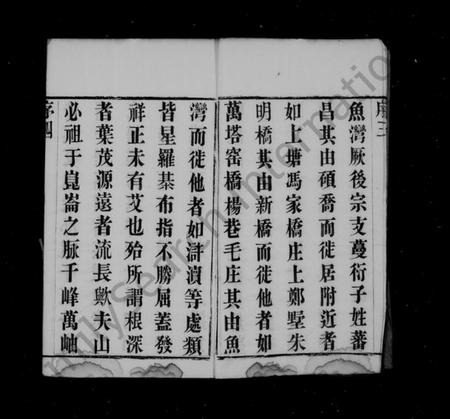 序三
魚灣厥後宗支蔓衍子姓蕃
昌其由碩喬而徙居附近者
如上塘馮家橋庄上鄭墅朱
明橋其由新橋而徙他者如
萬塔窑橋楊巷毛庄其由魚
灣而徙他者如滸滇等處類
皆星羅棊布指不勝屈蓋發
祥正未有艾也殆所謂根深
者葉茂源遠者流長歟夫山
必祖于崑崙之脉千峰萬岫
序四
FamilySearch International